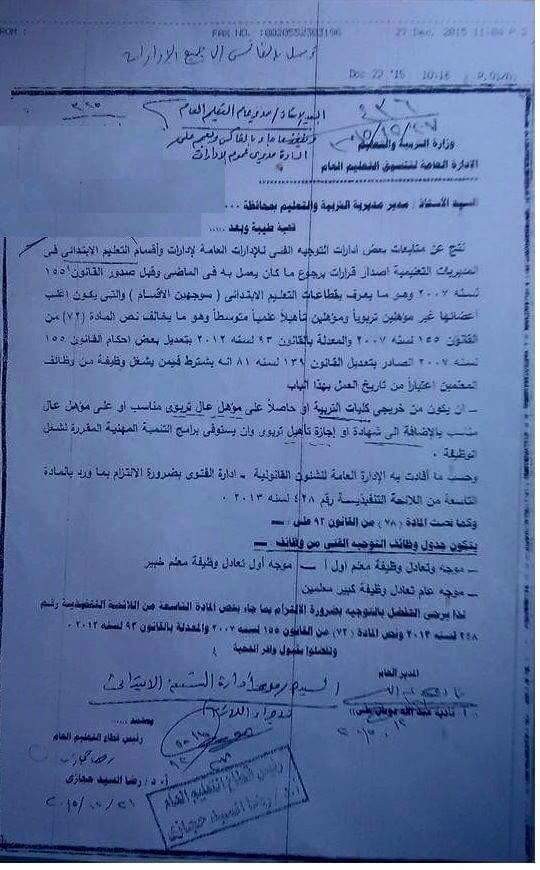 ROM :
FAX NO. :0020552303196
27 Dec. 2015 11:04 P 2
Dec 27 '15 10:16 P.01/01
السيد الأستاذ / مدير عام التعليم العام
وزارة التربية والتعليم
الادارة العامة لتنسيق التعليم العام
السيد الأستاذ : مدير مديرية التربية والتعليم بمحافظة ...
تحية طيبة وبعد .....
نتج عن متابعات بعض ادارات التوجيه الفنى للإدارات العامة لإدارات وأقسام التعليم الابتدائى فى
المديريات التعليمية اصدار قرارات برجوع ما كان يعمل به فى الماضى وقبل صدور القانون ١٥٥
لسنه ٢٠٠٧ وهو ما يعرف بقطاعات التعليم الابتدائى ( موجهين الاقسام ) والتى يكون اغلب
اعضائها غير مؤهلين تربوياً ومؤهلين تأهيلاً علمياً متوسطاً وهو ما يخالف نص المادة (٧٢) من
القانون ١٥٥ لسنه ٢٠٠٧ والمعدلة بالقانون ٩٣ لسنه ٢٠١٢ بتعديل بعض احكام القانون ١٥٥
لسنه ٢٠٠٧ الصادر بتعديل القانون ١٣٩ لسنه ٨١ انه يشترط فيمن يشغل وظيفة من وظائف
المعلمين اعتباراً من تاريخ العمل بهذا الباب
– ان يكون من خريجى كليات التربية او حاصلاً على مؤهل عال تربوى مناسب او على مؤهل عال
مناسب بالإضافة الى شهادة او إجازة تأهيل تربوى وان يستوفى برامج التنمية المهنية المقررة لشغل
الوظيفة .
وحسب ما أفادت به الإدارة العامة للشئون القانونية – ادارة الفتوى بضرورة الالتزام بما ورد بالمادة
التاسعة من اللائحة التنفيذية رقم ٤٢٨ لسنه ٢٠١٣ .
وكما نصت المادة (٧٨) من القانون ٩٣ على :
يتكون جدول وظائف التوجيه الفنى من وظائف :
– موجه وتعادل وظيفة معلم اول أ – موجه أول تعادل وظيفة معلم خبير
– موجه عام تعادل وظيفة كبير معلمين
لذا يرجى التفضل بالتوجيه بضرورة الالتزام بما جاء بنص المادة التاسعة من اللائحة التنفيذية رقم
٢٤٨ لسنه ٢٠١٣ ونص المادة (٧٢) من القانون ١٥٥ لسنه ٢٠٠٧ والمعدلة بالقانون ٩٣ لسنه ٢٠١٢ .
وتفضلوا بقبول وافر التحية
المدير العام
يعتمد .....
رئيس قطاع التعليم العام
أ.د/ رضا السيد حجازى